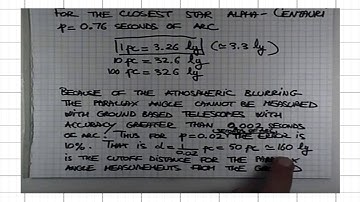 FOR THE CLOSEST STAR ALPHA-CENTAURI
p = 0.76 SECONDS OF ARC
1 pc = 3.26 ly (≃ 3.3 ly)
10 pc = 32.6 ly
100 pc = 32.6 ly
BECAUSE OF THE ATMOSPHERIC BLURRING
THE PARALLAX ANGLE CANNOT BE MEASURED
WITH GROUND BASED TELESCOPES WITH
ACCURACY GREATER THAN 0.002 SECONDS
OF ARC. THUS FOR p = 0.02 THE ERROR IS
10%. THAT IS d = 1/0.02 pc = 50 pc ≃ 160 ly
IS THE CUTOFF DISTANCE FOR THE
ANGLE MEASUREMENTS FROM THE